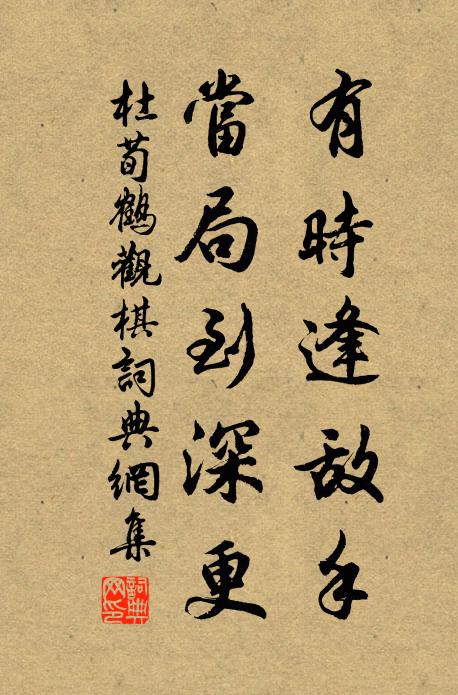 有時逢敵手
當局到深更
杜荀鶴觀棋詞典網集
詞典網印